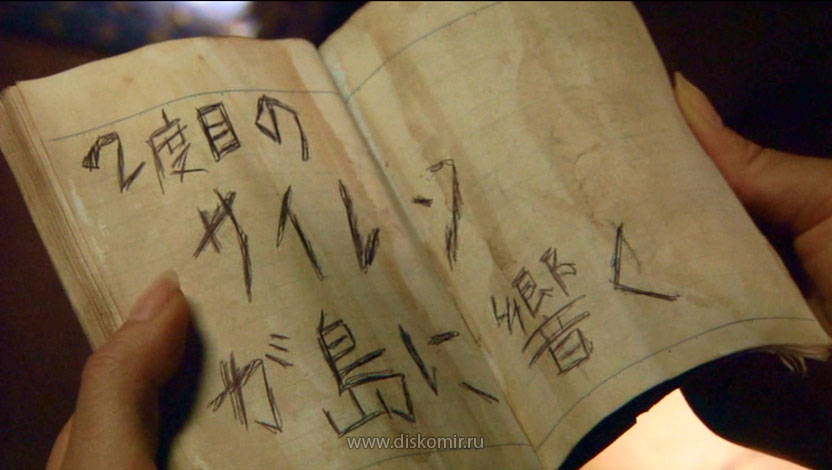 2度目の
サイレン
が島に響く
www.diskomir.ru